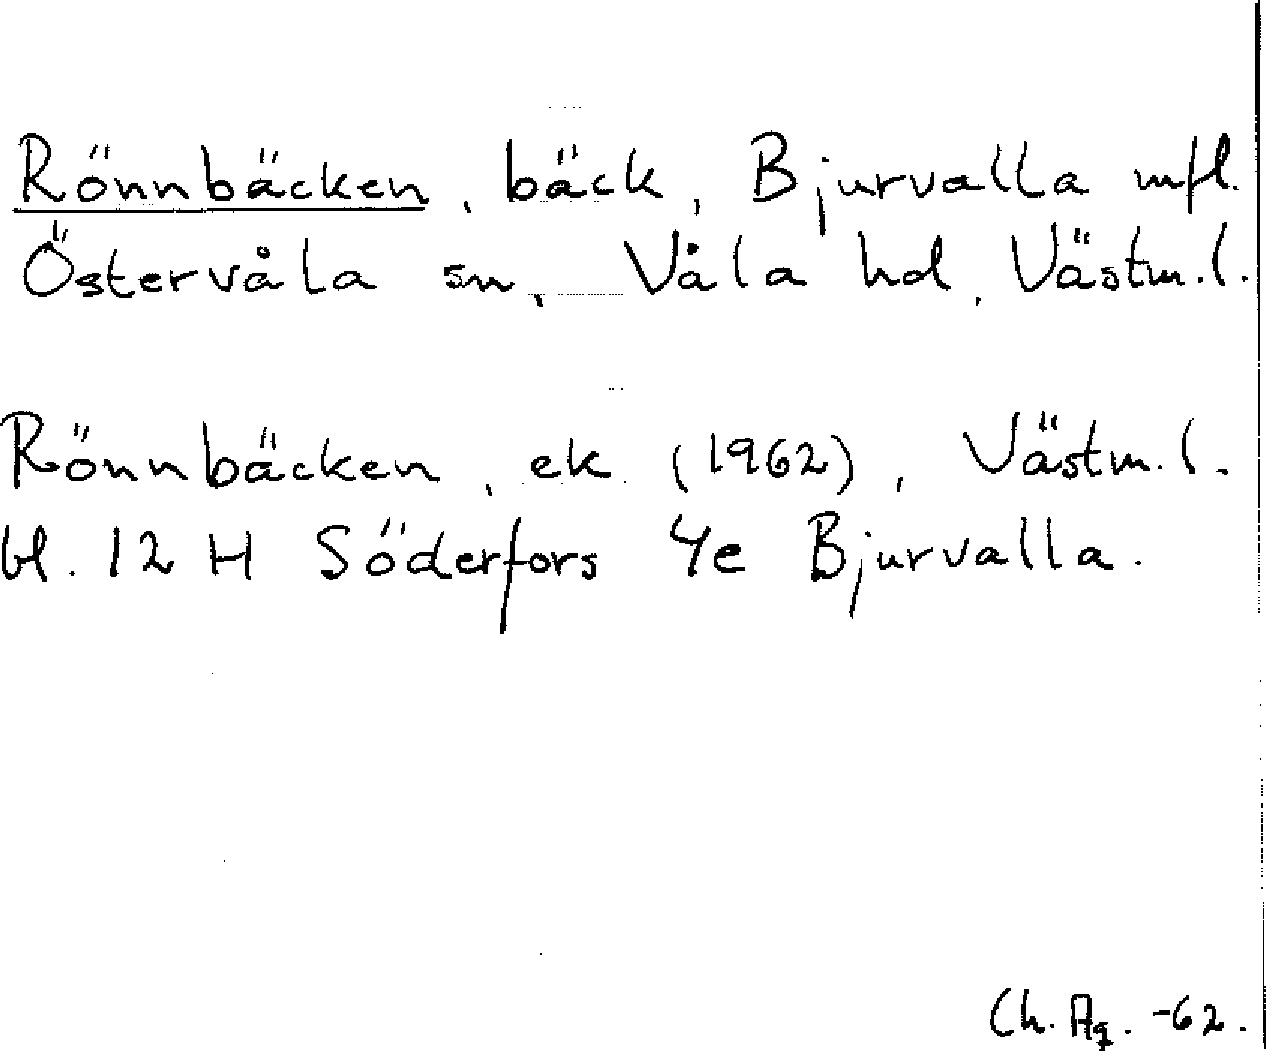 Rönnbäcken, bäck, Bjurvalla mfl.
Östervåla sn, Våla hd, Västm.l.
Rönnbäcken, ek (1962), Västm.l.
bl. 12 H Söderfors 4e Bjurvalla.
Ch. Ag. -62.